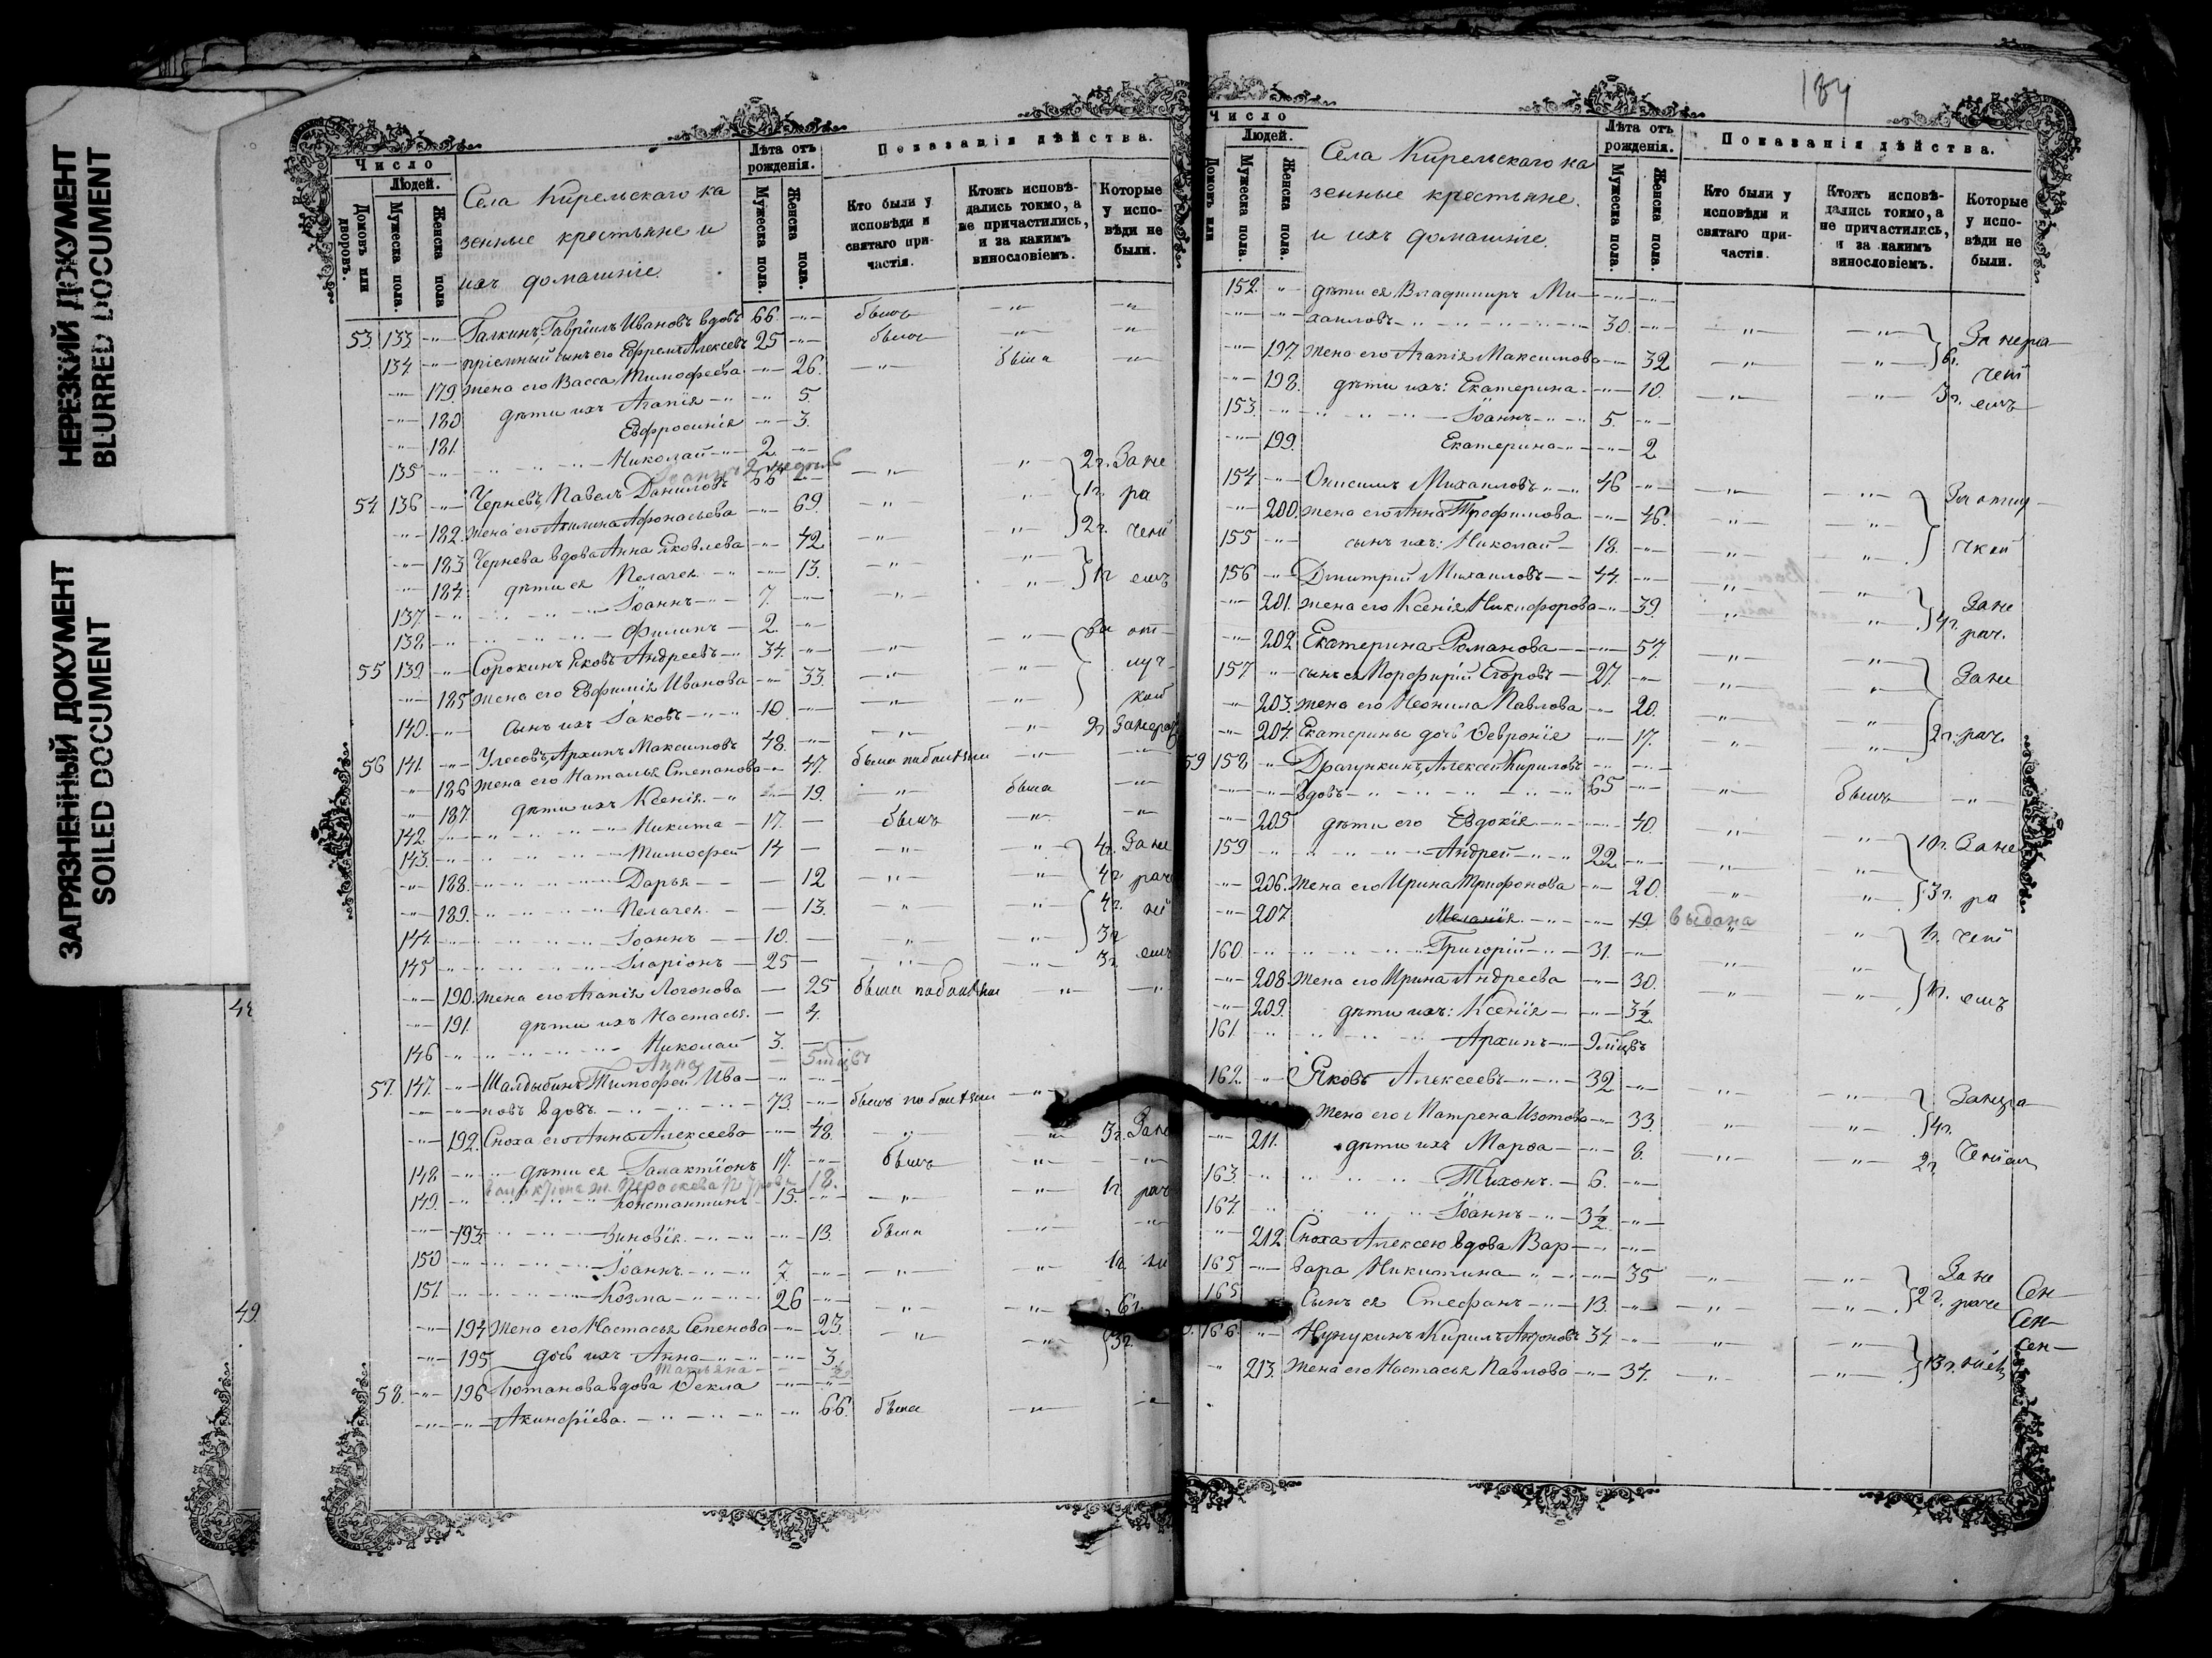 НЕРЕЗКИЙ ДОКУМЕНТ
BLURRED DOCUMENT
ЗАГРЯЗНЕННЫЙ ДОКУМЕНТ
SOILED DOCUMENT
49.
Число
Людей.
Домовъ или дворовъ.
Мужеска пола.
Женска пола
Села Кирельскаго ка
зенные крестьяне и
ихъ домашніе
Лѣта отъ рожденія.
Мужеска пола.
Женска пола.
Показанія дѣйства.
Кто были у исповѣди и святаго причастія.
Ктожъ исповѣдались токмо, а не причастились, и за какимъ винословіемъ.
Которые у исповѣди не были.
53. 133. -"- Галкинъ, Гавріилъ Ивановъ вдовъ 66. -"- былъ -"- -"-
134. -"- пріемный сынъ его Ефремъ Алексеевъ 25 -"- былъ -"- "
-"- 179. жена его Васса Тимофеева -"- 26. -"- была -"-
-"- 180 дѣти ихъ Агапія -"- 5.
-"- 181. Евфросинія -"- 3.
135 -"- Николай -"- 2. -"-
54. 136 -"- Черневъ, Павелъ Даниловъ 66 -"- -"- " 2г. За не
-"- 182. жена его Акилина Афонасьева -"- 69. -"- " 1г. ра
-"- 183 Чернева вдова Анна Яковлева -"- 42. -"- " 2г. чені
-"- 184. дѣти ея Пелагея -"- 13. -"- " 1г емъ
137. -"- Іоаннъ -"- 7. -"-
138. -"- Филипъ - 2. -"-
55 139. -"- Сорокинъ Яковъ Андреевъ -"- 34. -"- -"- -"- За от-
-"- 185 жена его Евфимія Ивановa -"- 33. -"- -"- луч-
140. -"- сынъ ихъ Іаковъ -"- 10. -"- -"- кой
56 141. -"- Улесовъ, Архипъ Максимовъ 48. -"- -"- " 2г
-"- 186 жена его Наталья Степанова -"- 47. была по болѣзни -"- -"-
-"- 187. дѣти ихъ Ксенія -"- 19. -"- была -"-
142. -"- Никита - 17. - былъ -"- -"-
143. -"- Тимофей 14 - -"- -"- 4г. За не
-"- 188. Дарья - - 12 -"- -"- 4г рач
-"- 189. Пелагея - - 13. -"- -"- 4г. ні
144. -"- Іоаннъ - 10. - -"- -"- 3г
145 -"- Иларіонъ - 25 - -"- -"- 3г. емъ
-"- 190. жена его Агапія Логонова - 25 была по болѣзни -"- -"-
-"- 191. дѣти ихъ Настасья. - 4.
146 -"- Николай 3. -
Анна - 5 мѣцъ
57. 147. -"- Шалдыбинъ, Тимофей Ива- -"- -"-
-"- -"- новъ вдовъ. 73. -"- былъ по болѣзни -"-
-"- 192. Сноха его Анна Алексеева -"- 48. -"- " 3г. За не
148 -"- дѣти ея Галактіонъ 17. -"- былъ -"- -"-
18.
149. -"- Константинъ - 15. -"- -"- -"- 1г рач
-"- 193. Зиновія. -"- -"- 13. была -"- -"-
150 -"- Іоаннъ. -"- 7. -"- -"- -"- 1г. ні
151. -"- Козма -"- 26 -"- -"- -"- 6г.
-"- 194 жена его Настасья Семенова -"- 23. -"- -"- 3г.
-"- 195. дочь ихъ Анна -"- -"- 3.
Татьяна
58. -"- 196 вдова Ѳекла -"- -"-
-"- -"- Акинфіева. -"- 66. была -"- -"-
184
Число
Людей.
Домовъ или
Мужеска пола.
Женска пола.
Села Кирельскаго ка
зенные крестьяне.
и ихъ домашніе.
Лѣта отъ рожденія.
Мужеска пола.
Женска пола.
Показанія дѣйства.
Кто были у исповѣди и святаго причастія.
Ктожъ исповѣдались токмо, а не причастились, и за какимъ винословіемъ.
Которые у исповѣди не были.
152. -"- дѣти ея Владимиръ Ми- -"- -"-
-"- -"- хаиловъ 30. -"- -"- -"- За нера-
-"- 197. жена его Агапія Максимова -"- 32 -"- -"- 6г. чені
-"- 198. дѣти ихъ: Екатерина -"- 10. -"- -"- 3г. емъ
153. -"- Іоаннъ -"- 5. -"-
-"- 199. Екатерина -"- -"- 2
154 -"- Онисимъ Михаиловъ -"- 46 -"- -"- -"- За отлу-
-"- 200. жена его Анна Трофимова -"- 46. -"- -"- чкой
155 -"- сынъ ихъ: Николай - 18. -"- -"- -"-
156 -"- Дмитрій Михаиловъ - 44. -"- -"- -"- За не
-"- 201. жена его Ксенія Никифорова -"- 39. -"- -"- 4г. рач.
-"- 202. Екатерина Романова -"- 57. -"- -"-
157 -"- сынъ ея Порфирій Егоровъ - 27. -"- -"- -"- За не
-"- 203. жена его Неонила Павлова -"- 20. -"- -"-
-"- 204. Екатерины дочь Ѳевронія -"- 17. -"- -"- 2г. рач.
59 158 -"- Драгункинъ, Алексей Кириловъ -"- -"-
-"- -"- вдовъ 65 -"- -"- былъ -"-
-"- 205 дѣти его Евдокія -"- 40. -"- -"- 10г. За не
159 -"- Андрей -"- 22 -"- -"- -"-
-"- 206. жена его Ирина Трифонова -"- 20. -"- -"- 3г. ра
-"- 207. Меланія. -"- 19 выдана -"- -"-
160. -"- Григорій -"- 31. -"- -"- -"- 1г. чені
-"- 208. жена его Ирина Андреева -"- 30. -"- -"- 1г. емъ
-"- 209. дѣти ихъ: Ксенія -"- 3½
161. -"- Архипъ -"- 9 мѣцъ
162. -"- Яковъ Алексеевъ -"- 32 -"- -"- -"- За нера-
жена его Матрена Изотова -"- 33 -"- -"- 4г.
-"- 211. дѣти ихъ Марѳа -"- 8. -"- -"- 2г.
163. -"- Тихонъ. - 6. -"-
164. -"- Іоаннъ -"- 3½ -"-
-"- 212. Сноха Алексею вдова Вар- -"- -"-
165 -"- вара Никитина -"- 35 -"- -"- За не
165 Сынъ ея Стефанъ -"- 13. -"- -"- -"- 2г. раче Сен-
Сен-
166. -"- Кирилъ 34. -"- -"- -"- сен-
-"- 213. жена его Настасья Павлова -"- 34. -"- -"- 13г.